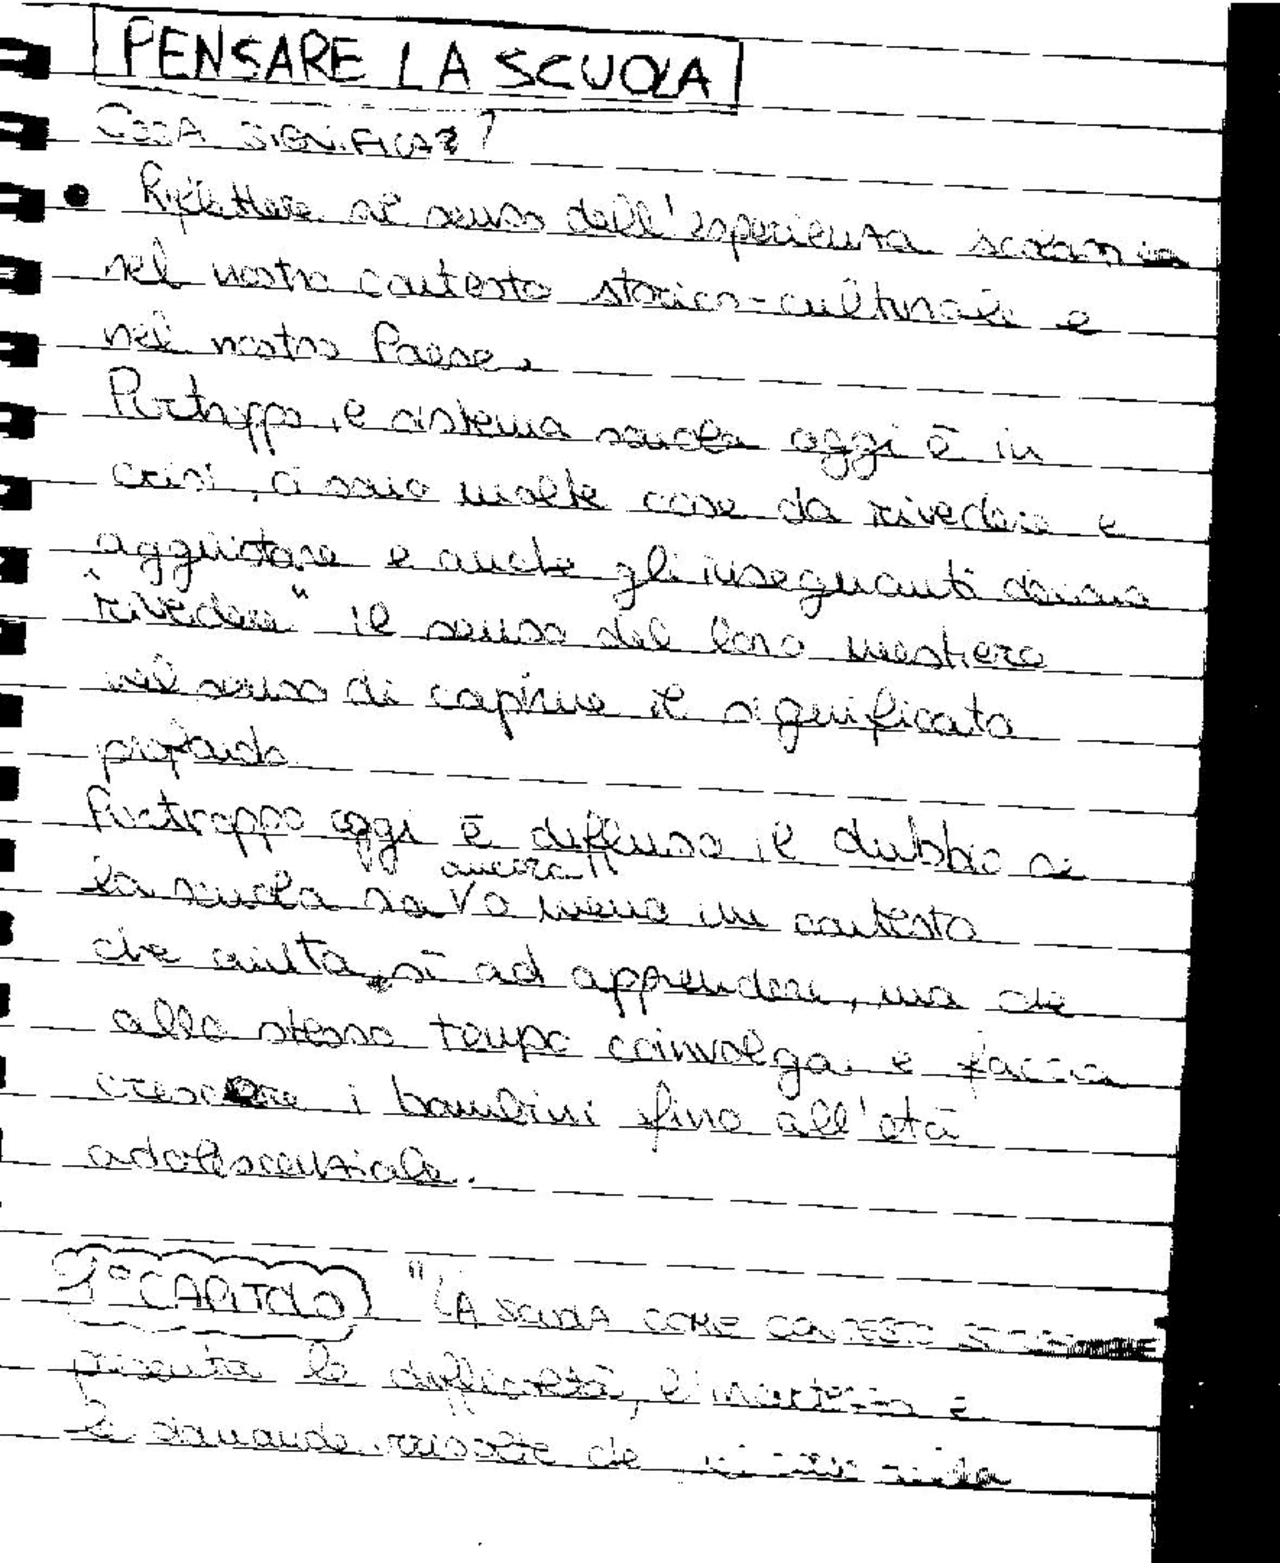 PENSARE LA SCUOLA
COSA SIGNIFICA?
• Riflettere sul senso dell'esperienza scolastica
nel nostro contesto storico-culturale e
nel nostro Paese.
Purtroppo il sistema scuola oggi è in
crisi, ci sono molte cose da rivedere e
aggiustare e anche gli insegnanti devono
"rivedere" il senso del loro mestiere
nel senso di capirne il significato
profondo
Purtroppo oggi è diffuso il dubbio se
la scuola sia ancora o meno un contesto
che aiuta, sì ad apprendere, ma che
allo stesso tempo coinvolga e faccia
crescere i bambini fino all'età
adolescenziale.
1° CAPITOLO "LA SCUOLA COME CONTESTO
presenta le difficoltà, l'incertezza e
le domande irrisolte che